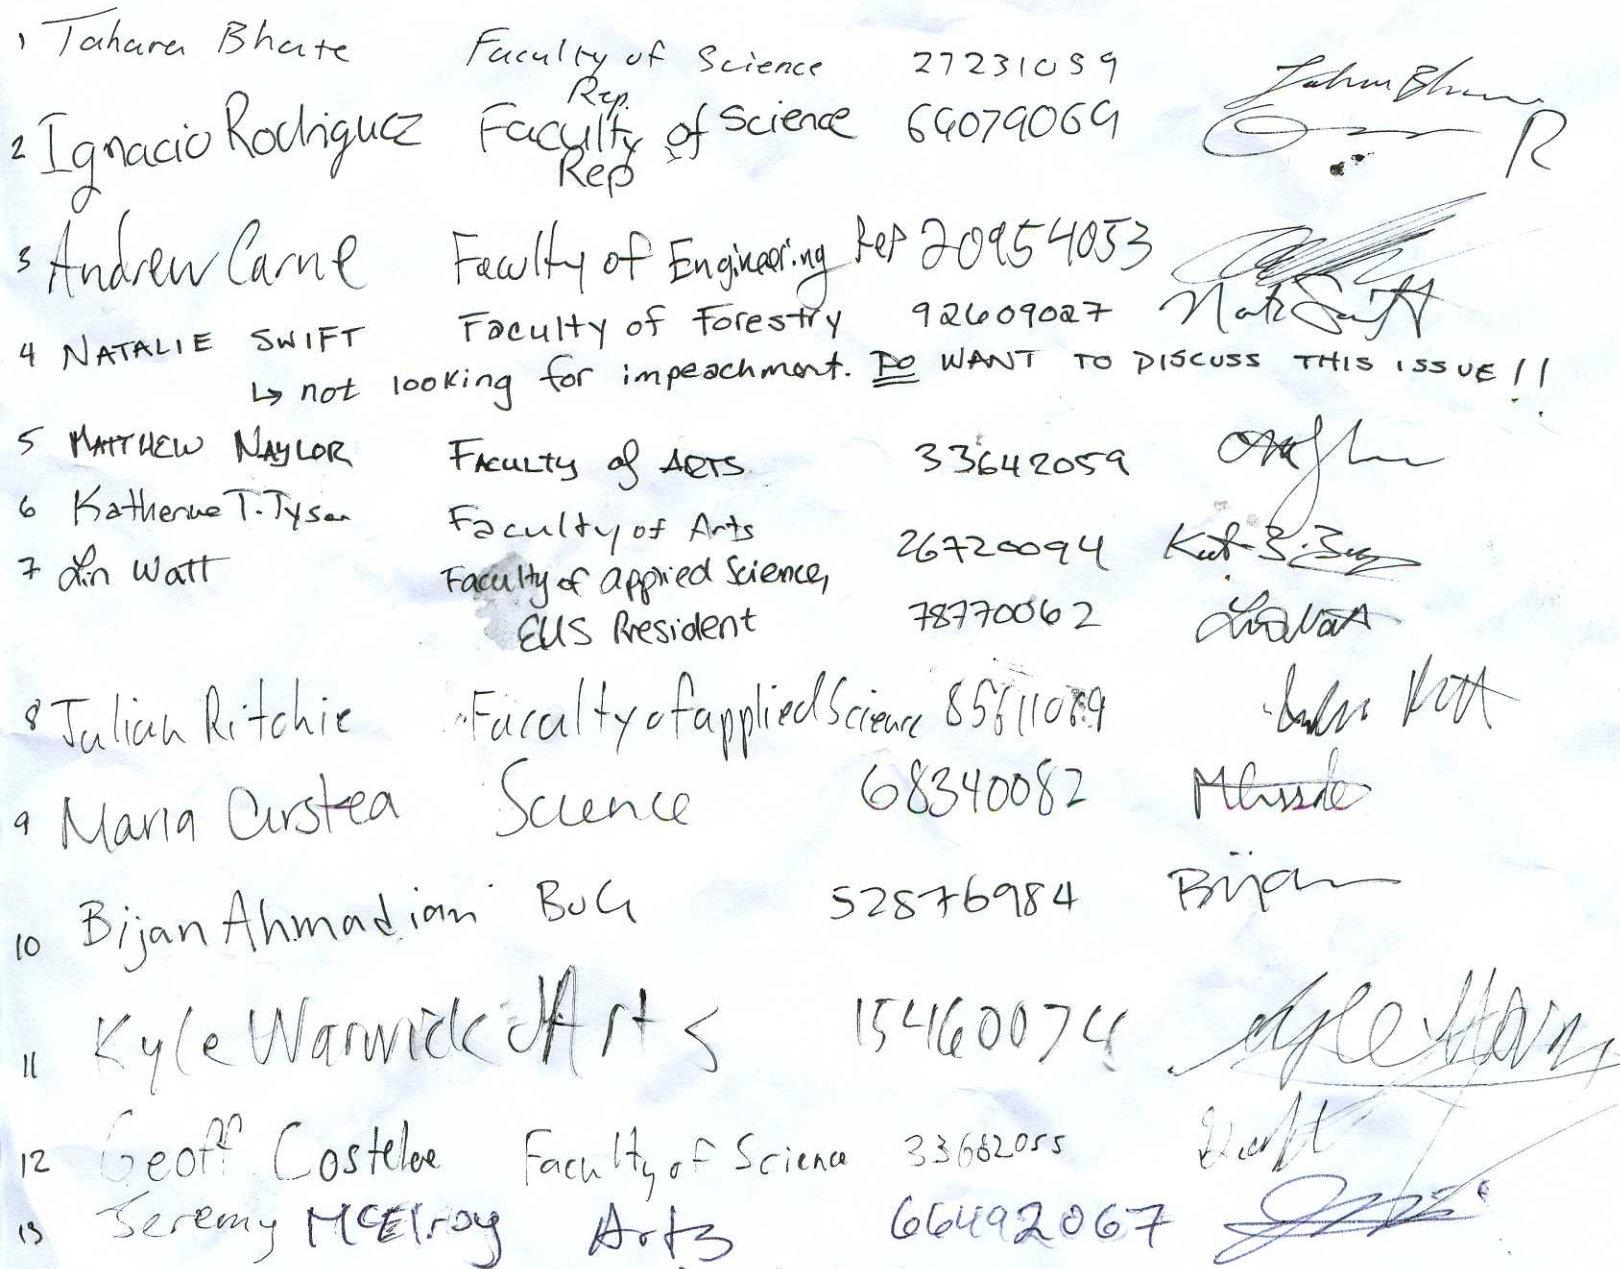 1 Tahara Bhate Faculty of Science Rep. 27231059
2 Ignacio Rodriguez Faculty of Science Rep 69079069
3 Andrew Carne Faculty of Engineering Rep 20954053
4 NATALIE SWIFT Faculty of Forestry 92609027
↳ not looking for impeachment. DO WANT TO DISCUSS THIS ISSUE!!
5 MATTHEW NAYLOR FACULTY of ARTS 33642059
6 Katherine T. Tyson Faculty of Arts 26720094
7 Lin Watt Faculty of Applied Science,
EUS President 78770062
8 Julian Ritchie Faculty of applied Science
9 Maria Cirstea Science 68340082
10 Bijan Ahmadian BoG 52876984
11 Kyle Warwick Arts 15460074
12 Geoff Costeloe Faculty of Science 33682055
13 Jeremy McElroy Arts 66492067